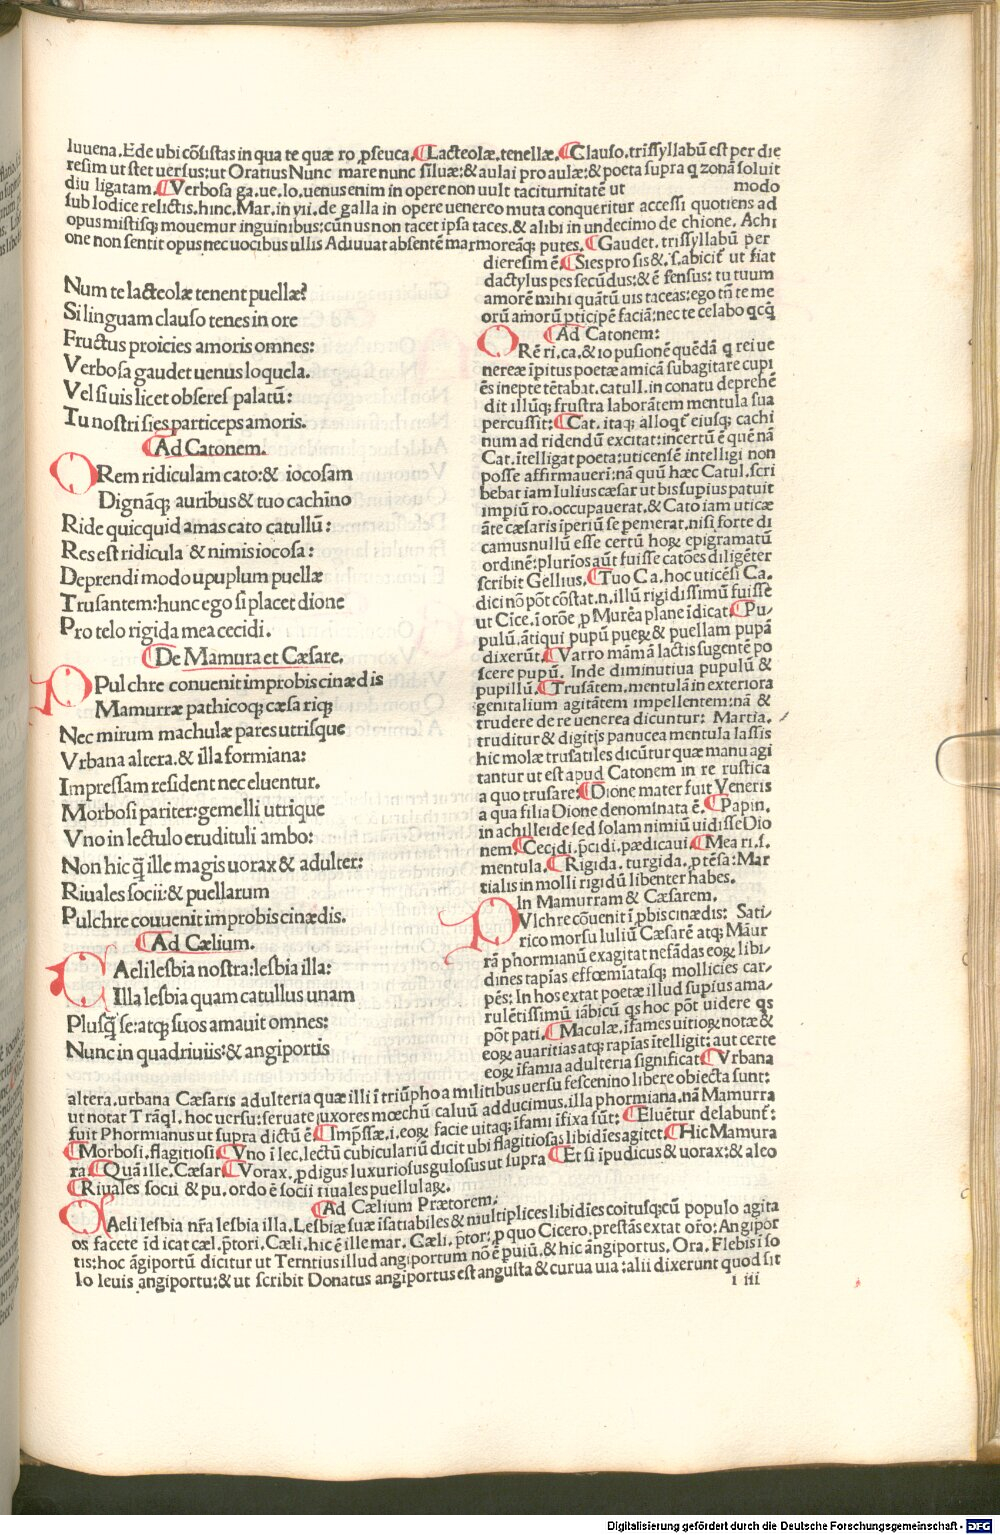 Iuuena. Ede ubi cōsistas in qua te quæro pseuca. ¶Lacteolæ. tenellæ. ¶Clauso. trissyllabū est per die
resim ut stet uersus: ut Oratius Nunc mare nunc siluæ: & aulai pro aulæ: & poeta supra q zonā soluit
diu ligatam. ¶Verbosa ga. ue. lo. uenus enim in opere non uult taciturnitatē ut modo
sub lodice relictis. hinc. Mar. in vii. de galla in opere uenereo muta conqueritur accessi quotiens ad
opus mistisq; mouemur inguinibus: cūnus non tacet ipsa taces. & alibi in undecimo de chione. Achi
one non sentit opus nec uocibus ullis Adiuuat absentē marmoreāq; putes. ¶Gaudet. trissyllabū per
Num te lacteolæ tenent puellæ?
Si linguam clauso tenes in ore
Fructus proicies amoris omnes:
Verbosa gaudet uenus loquela.
Vel si uis licet obseres palatū:
Tu nostri sies particeps amoris.
¶Ad Catonem.
O Rem ridiculam cato: & iocosam
Dignāq; auribus & tuo cachino
Ride quicquid amas cato catullū:
Res est ridicula & nimis iocosa:
Deprendi modo upuplum puellæ
Trusantem: hunc ego si placet dione
Pro telo rigida mea cecidi.
¶De Mamura et Cæsare.
P Pulchre conuenit improbis cinædis
Mamurræ pathicoq; cæsariq;
Nec mirum machulæ pares utrisque
Vrbana altera. & illa formiana:
Impressam resident nec eluentur.
Morbosi pariter: gemelli utrique
Vno in lectulo erudituli ambo:
Non hic q̄ ille magis uorax & adulter:
Riuales socii: & puellarum
Pulchre couuenit improbis cinædis.
¶Ad Cælium.
C Aeli lesbia nostra: lesbia illa:
Illa lesbia quam catullus unam
Plusq̄ se: atq; suos amauit omnes:
Nunc in quadriuiis: & angiportis
dieresim ē. ¶Sies pro sis &. s. abicit̄ ut fiat
dactylus pes secūdus: & ē sensus: tu tuum
amorē mihi quātū uis taceas: ego tn̄ te me
orū amorū pticipē faciā: nec te celabo qcq̄
¶Ad Catonem:
O Rē ri. ca. & io pusionē quēdā q rei ue
nereæ īpitus poetæ amicā subagitare cupi
ēs inepte tētabat. catull. in conatu deprehē
dit illūq; frustra laborātem mentula sua
percussit: ¶Cat. itaq; alloqt̄ eiusq; cachi
num ad ridendū excitat: incertū ē quē nā
Cat. ītelligat poeta: uticensē intelligi non
posse affirmaueri: nā quū hæc Catul. scri
bebat iam Iulius cæsar ut bis supius patuit
impiū ro. occupauerat. & Cato iam uticæ
āte cæsaris iperiū se pemerat. nisi forte di
camus nullū esse certū hoꝝ epigramatū
ordinē: plurios aūt fuisse catōes diligēter
scribit Gellius. ¶Tuo Ca. hoc uticēsi Ca.
dici nō pōt cōstat. n. illū rigidissimū fuisse
ut Cice. ī orōe, p Murēa plane īdicat. ¶Pu/
pulū. ātiqui pupū pueꝝ & puellam pupā
dixerūt. ¶Varro māmā lactis sugentē po
scere pupū. Inde diminutiua pupulū &
pupillū. ¶Trusātem. mentulā in exteriora
genitalium agitātem impellentem: nā &
trudere de re uenerea dicuntur: Martia.
truditur & digitis panucea mentula lassis
hic molæ trusatiles dicūtur quæ manu agi
tantur ut est apud Catonem in re rustica
a quo trusare: ¶Dione mater fuit Veneris
a qua filia Dione denominata ē. ¶Papin.
in achilleide sed solam nimiū uidisse Dio
nem. ¶Cecidi. pcidi. pædicaui. ¶Mea ri. s.
mentula. ¶Rigida. turgida. ptēsa: Mar
tialis in molli rigidū libenter habes.
In Mamurram & Cæsarem.
P Vlchre cōuenit ī pbis cinædis: Sati/
rico morsu Iuliū Cæsarē atq; Māur
rā phormianū exagitat nefādas eoꝝ libi/
dines tapīas effœmiatasq; mollicies car/
pēs: In hos extat poetæ illud supius ama/
rulētissimū iābicū qs hoc pōt uidere qs
pōt pati. ¶Maculæ. ifames uitioꝝ notæ &
eoꝝ auaritias atq; rapīas ītelligit: aut certe
eoꝝ ifamia adulteria significat ¶Vrbana
altera. urbana Cæsaris adulteria quæ illi ī triūpho a militibus uersu fescenino libere obiecta sunt:
ut notat Trāql. hoc uersu: seruate uxores mœchū caluū adducimus. illa phormiana. nā Mamurra
fuit Phormianus ut supra dictū ē ¶Impssæ. i. eoꝝ facie uitaq; ifami ifixa sūt: ¶Eluētur delabunt̄:
¶Morbosi. flagitiosi. ¶Vno ī lec. lectū cubiculariū dicit ubi flagitiosas libidīes agitet. ¶Hic Mamura
ra. ¶Quā ille. Cæsar ¶Vorax. pdigus luxuriosus gulosus ut supra ¶Et si ipudicus & uorax: & aleo
¶Riuales socii & pu. ordo ē socii riuales puellulaꝝ.
¶Ad Cælium Prætorem:
C Aeli lesbia nr̄a lesbia illa. Lesbiæ suæ īsatiabiles & multiplices libidīes coitusq; cū populo agita
os facete īd icat cæl. ptori. Cæli. hic ē ille mar. Cæli. ptor: p quo Cicero. prestās extat orō: Angipor
tis: hoc āgiportū dicitur ut Terntius illud angiportum nō ē puiū. & hic angiportus. Ora. Flebis ī so
lo leuis angiportu: & ut scribit Donatus angiportus est angusta & curua uia: alii dixerunt quod sit
i iii
Digitalisierung gefördert durch die Deutsche Forschungsgemeinschaft - DFG